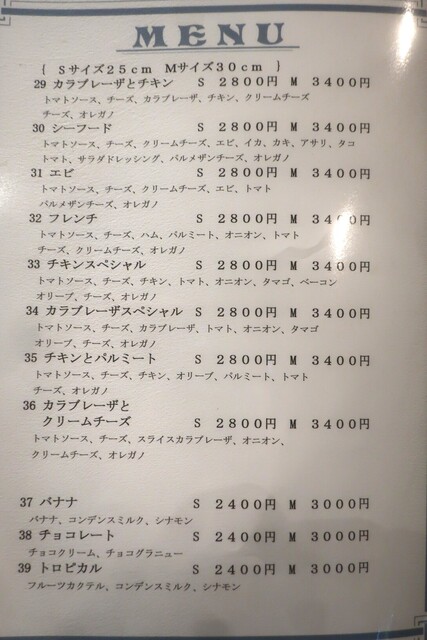 MENU
{ Sサイズ25cm Mサイズ30cm }
29 カラブレーザとチキン S 2800円 M 3400円
トマトソース、チーズ、カラブレーザ、チキン、クリームチーズ
チーズ、オレガノ
30 シーフード S 2800円 M 3400円
トマトソース、チーズ、クリームチーズ、エビ、イカ、カキ、アサリ、タコ
トマト、サラダドレッシング、パルメザンチーズ、オレガノ
31 エビ S 2800円 M 3400円
トマトソース、チーズ、クリームチーズ、エビ、トマト
パルメザンチーズ、オレガノ
32 フレンチ S 2800円 M 3400円
トマトソース、チーズ、ハム、パルミート、オニオン、トマト
チーズ、クリームチーズ、オレガノ
33 チキンスペシャル S 2800円 M 3400円
トマトソース、チーズ、チキン、トマト、オニオン、タマゴ、ベーコン
オリーブ、チーズ、オレガノ
34 カラブレーザスペシャル S 2800円 M 3400円
トマトソース、チーズ、カラブレーザ、トマト、オニオン、タマゴ
オリーブ、チーズ、オレガノ
35 チキンとパルミート S 2800円 M 3400円
トマトソース、チーズ、チキン、オリーブ、パルミート、トマト
チーズ、オレガノ
36 カラブレーザと
クリームチーズ S 2800円 M 3400円
トマトソース、チーズ、スライスカラブレーザ、オニオン、
クリームチーズ、オレガノ
37 バナナ S 2400円 M 3000円
バナナ、コンデンスミルク、シナモン
38 チョコレート S 2400円 M 3000円
チョコクリーム、チョコグラニュー
39 トロピカル S 2400円 M 3000円
フルーツカクテル、コンデンスミルク、シナモン